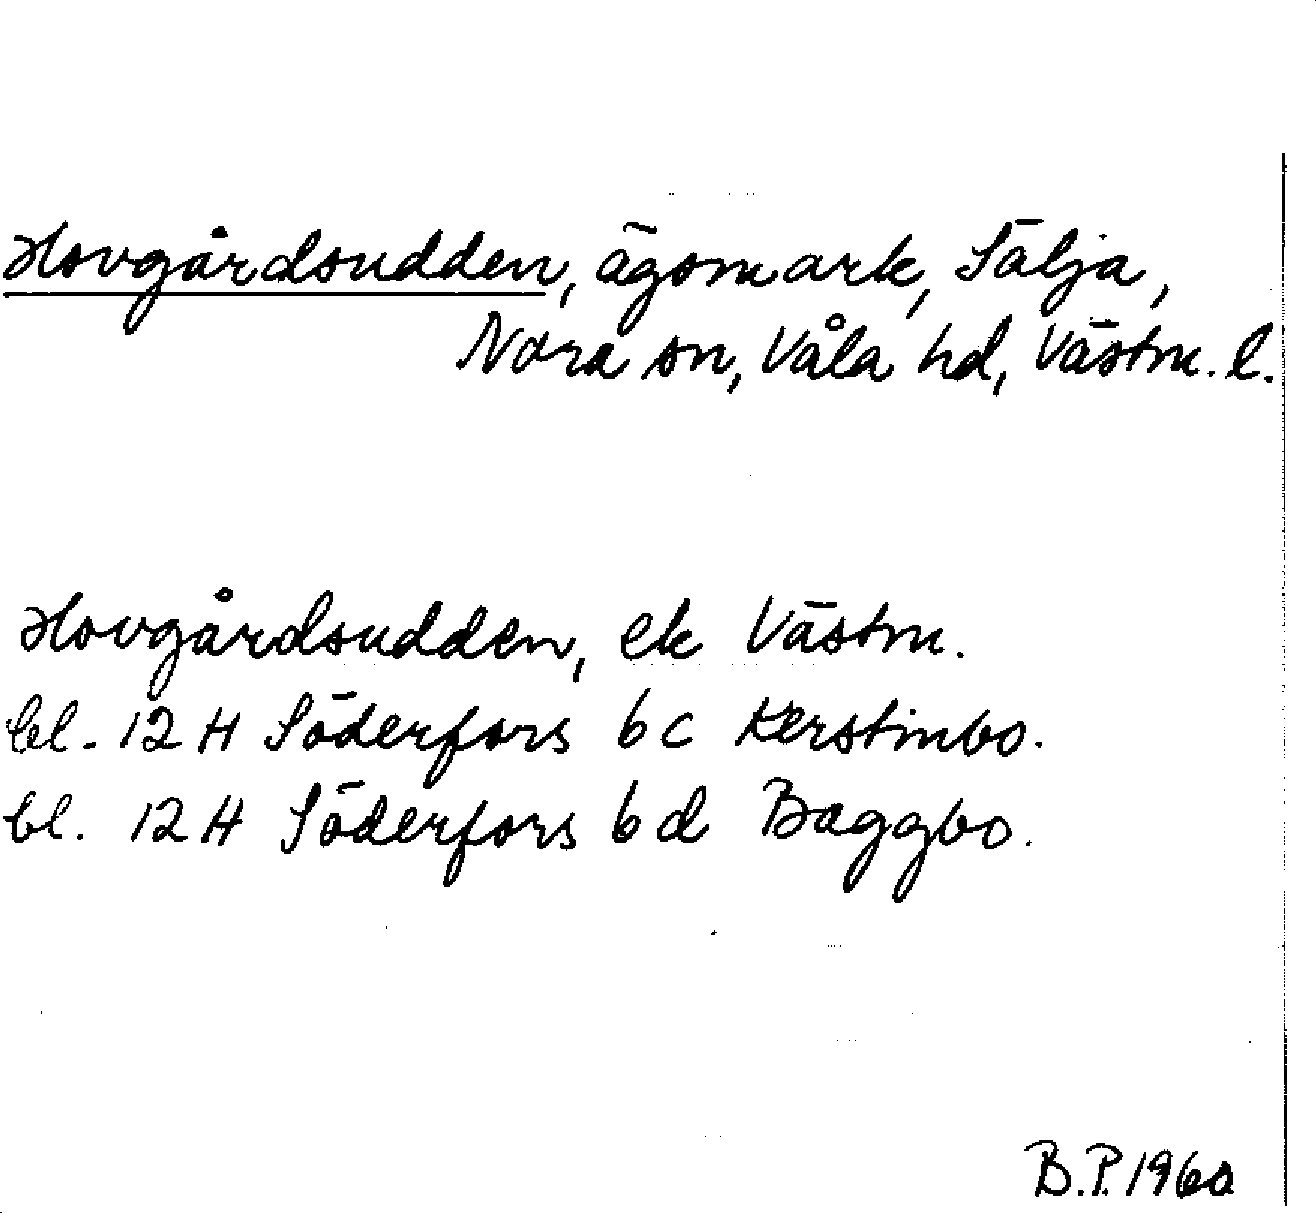 Hovgårdsudden, ägomark, Sälja,
Nora sn, Våla hd, Västm. l.
Hovgårdsudden, ek Västm.
bl. 12 H Söderfors 6 c Kerstinbo.
bl. 12 H Söderfors 6 d Baggbo.
B.P. 1960